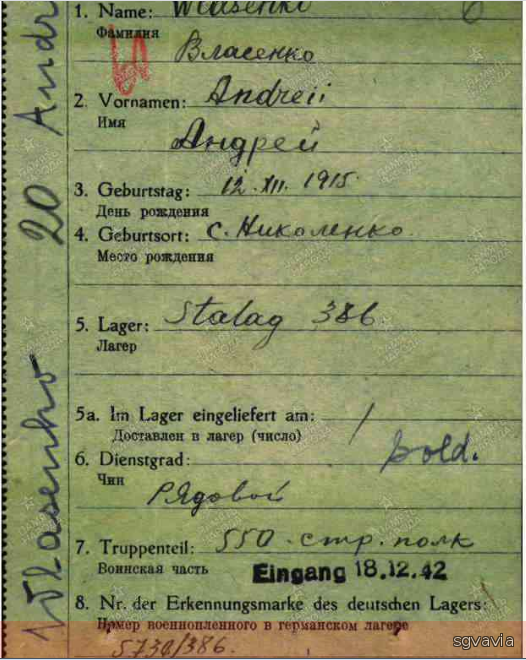 1. Name: Wlasenko
Фамилия
Власенко
2. Vornamen: Andreii
Имя
Андрей
3. Geburtstag: 12.XII. 1915.
День рождения
4. Geburtsort: с. Николенко
Место рождения
5. Lager: Stalag 386
Лагер
5a. Im Lager eingeliefert am: /
Доставлен в лагер (число)
6. Dienstgrad: Sold.
Чин
Рядовой
7. Truppenteil: 550. стр. полк
Воинская часть
Eingang 18.12.42
8. Nr. der Erkennungsmarke des deutschen Lagers:
Номер военнопленного в германском лагере
5730/386.
Wlasenko 20 Andr
sgvavia